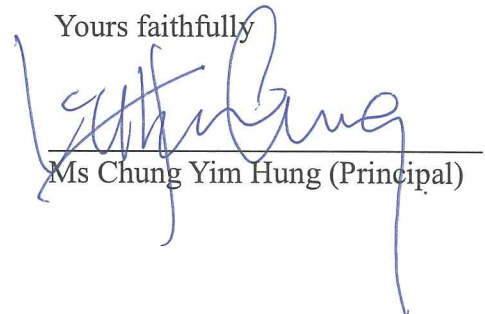 Yours faithfully
Ms Chung Yim Hung (Principal)